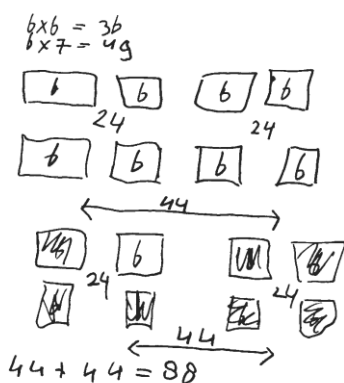 6x6 = 36
6x7 = 49
6 6 6 6
24 24
6 6 6 6
44
6
24 24
44
44 + 44 = 88